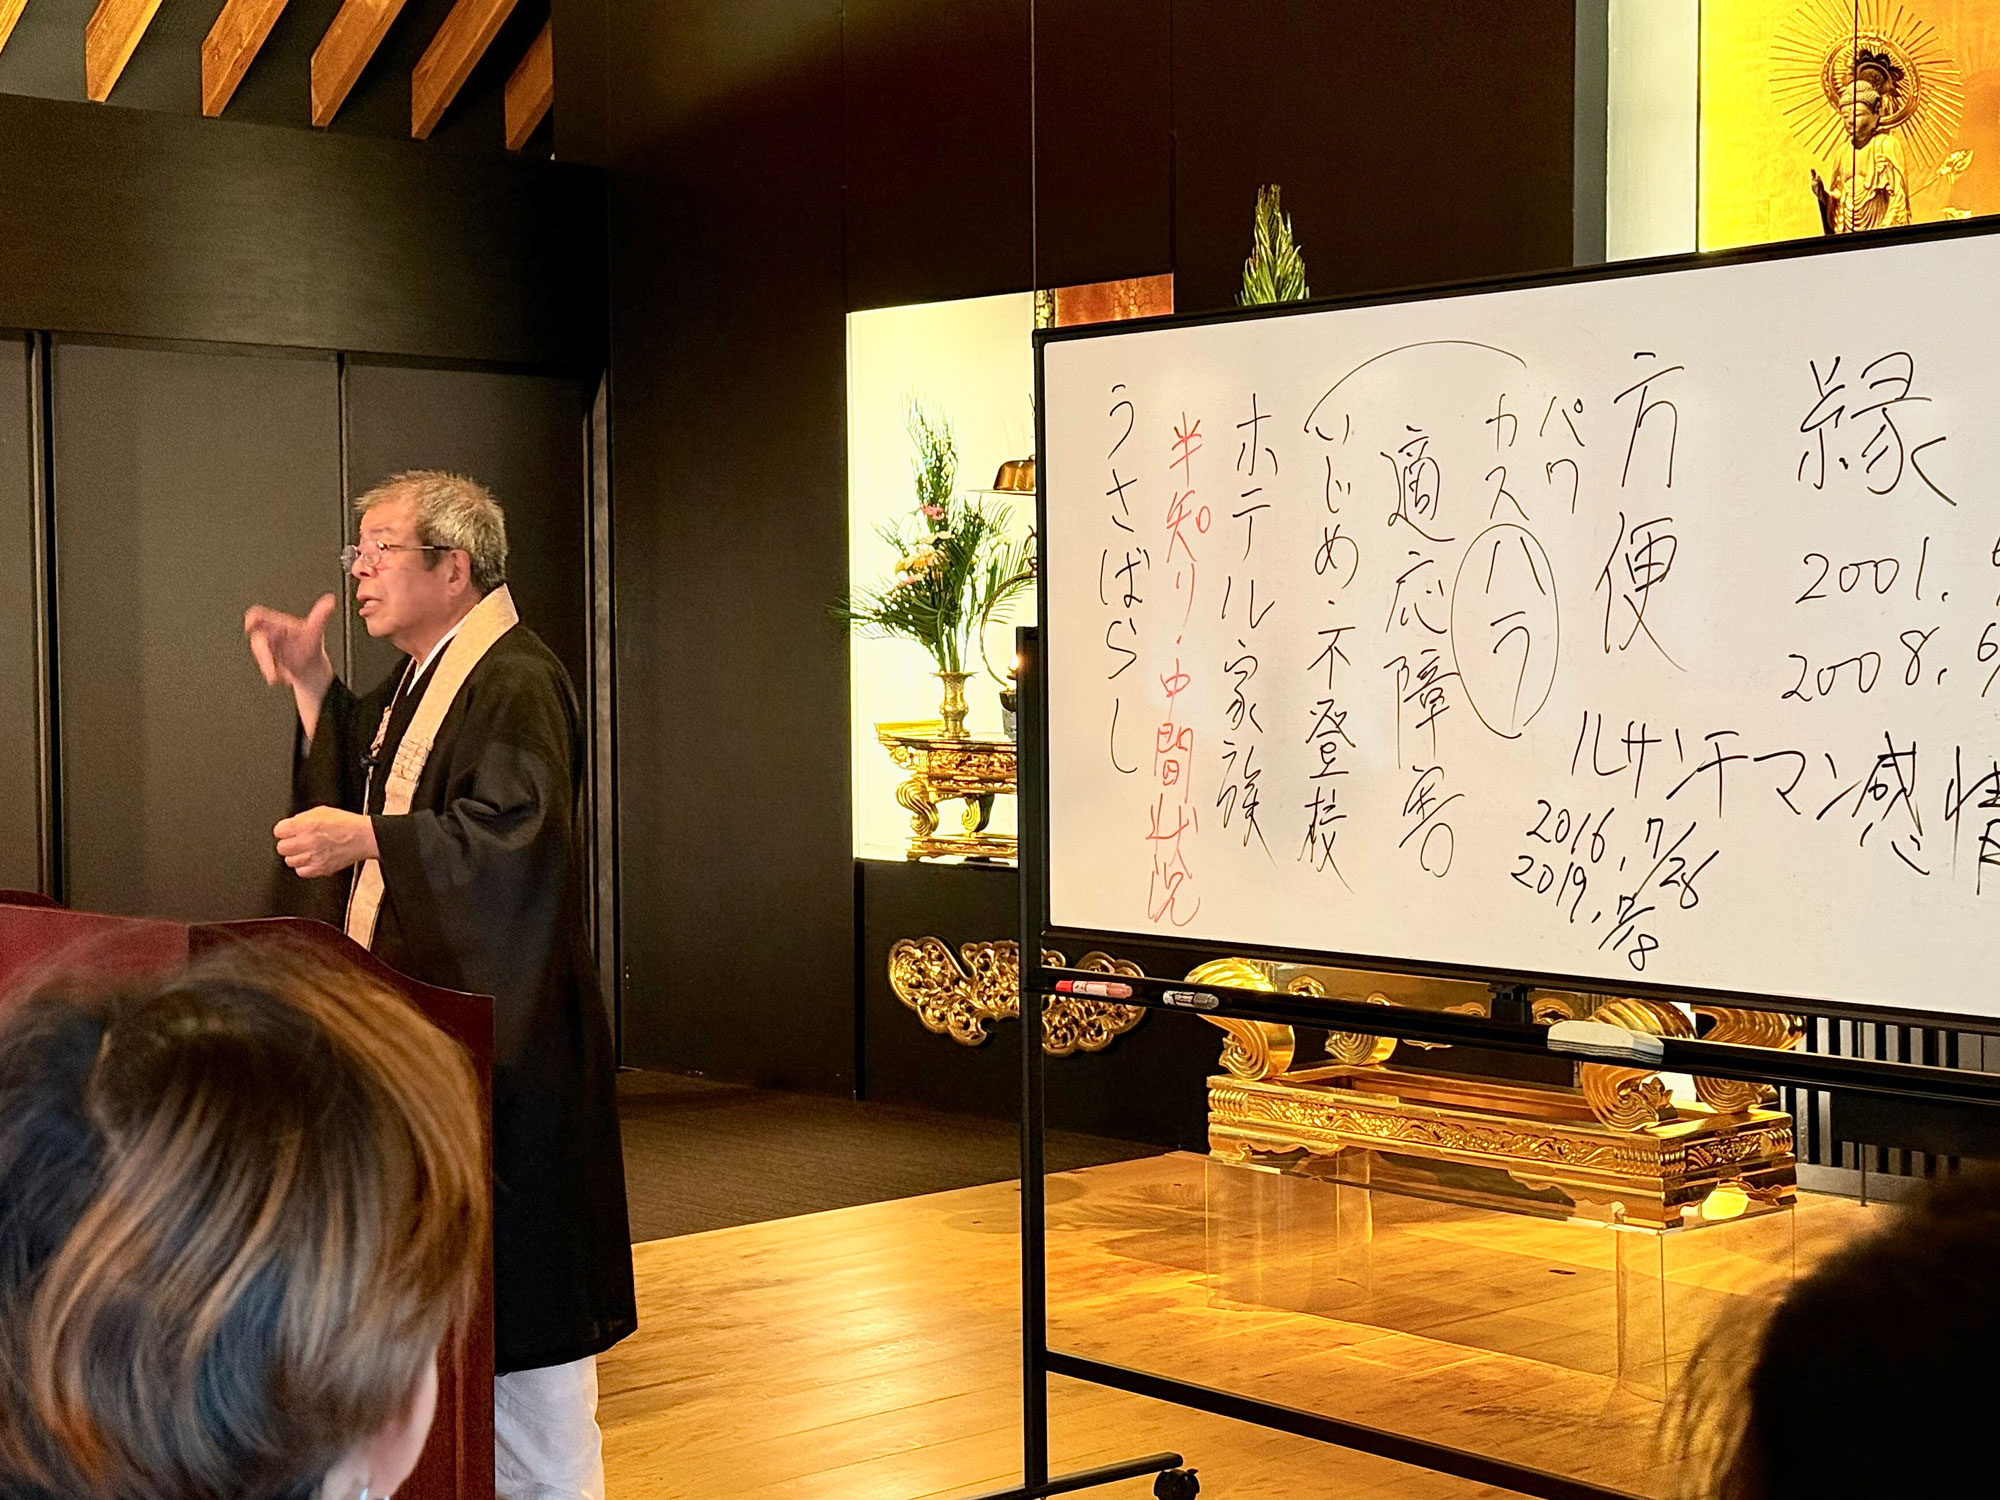 縁
2001.
2008.
方便
ルサンチマン感情
2016.7/26
2019.7/18
パワ
カスハラ
適応障害
いじめ・不登校
ホテル家族
半知り・中間状況
うさばらし